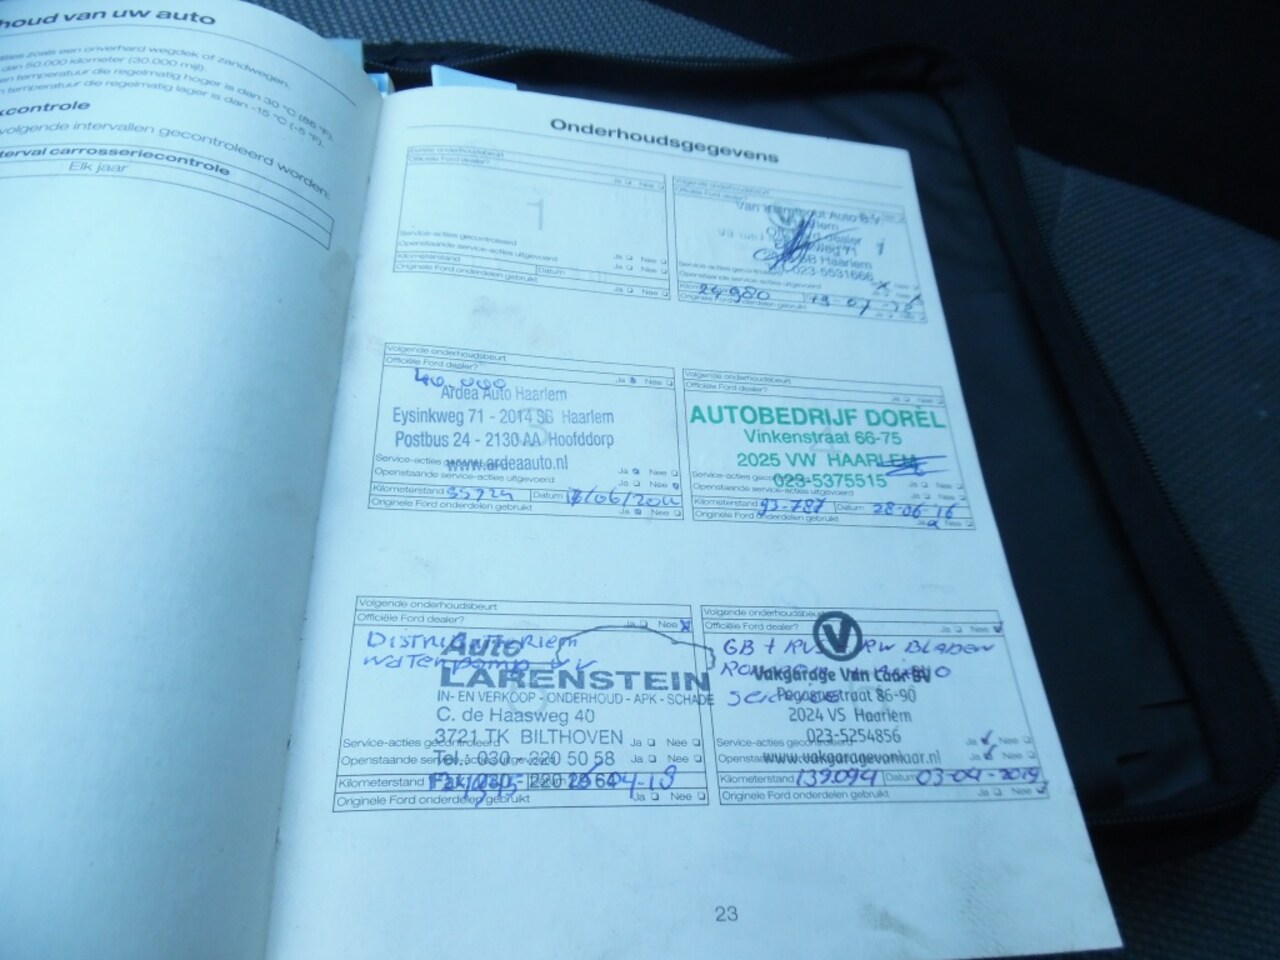 houd van uw auto
zoals een onverhard wegdek of zandwegen.
dan 50.000 kilometer (30.000 mijl).
en temperatuur die regelmatig hoger is dan 30 °C (86 °F).
n temperatuur die regelmatig lager is dan -15 °C (-5 °F).
controle
volgende intervallen gecontroleerd worden:
terval carrosseriecontrole
Elk jaar
Onderhoudsgegevens
Officiële Ford dealer?
Ja Nee
1
Service-acties gecontroleerd
Openstaande service-acties uitgevoerd
Ja Nee
Ja Nee
Kilometerstand Datum
Originele Ford onderdelen gebruikt
Ja Nee
Volgende onderhoudsbeurt
Officiële Ford dealer?
Auto B.V.
Haarlem
dealer
weg 71
SB Haarlem
023-5531666
Service-acties
Openstaande service-acties uitgevoerd
24.980 19-07-
Originele Ford onderdelen gebruikt
Volgende onderhoudsbeurt
Officiële Ford dealer?
Ja Nee
40.000
Ardea Auto Haarlem
Eysinkweg 71 - 2014 SB Haarlem
Postbus 24 - 2130 AA Hoofddorp
www.ardeaauto.nl
Service-acties
Ja Nee
Openstaande service-acties uitgevoerd
Ja Nee
Kilometerstand 55724 Datum /06/
Originele Ford onderdelen gebruikt
Ja Nee
Volgende onderhoudsbeurt
Officiële Ford dealer?
Ja Nee
AUTOBEDRIJF DORÈL
Vinkenstraat 66-75
2025 VW HAARLEM
023-5375515
Service-acties
Ja Nee
Openstaande service-acties uitgevoerd
Ja Nee
Kilometerstand 93.787 Datum 28-06-16
Originele Ford onderdelen gebruikt
Ja Nee
Volgende onderhoudsbeurt
Officiële Ford dealer?
Ja Nee
Distri Riem
Waterpomp
Auto
LARENSTEIN
IN- EN VERKOOP - ONDERHOUD - APK - SCHADE
C. de Haasweg 40
3721 TK BILTHOVEN
Service-acties gecontroleerd
Ja Nee
Openstaande service-acties uitgevoerd
Tel.: 030 - 220 50 58
Ja Nee
Kilometerstand
Fax: 030 - 220 29 64
04-18
Originele Ford onderdelen gebruikt
Ja Nee
Volgende onderhoudsbeurt
Officiële Ford dealer?
Ja Nee
V
GB + RW BLADEN
Vakgarage Van Laar BV
Pegasusstraat 86-90
2024 VS Haarlem
023-5254856
Service-acties gecontroleerd
Ja Nee
www.vakgaragevanlaar.nl
Ja Nee
Kilometerstand 139.094 Datum 03-04-2019
Originele Ford onderdelen gebruikt
Ja Nee
23